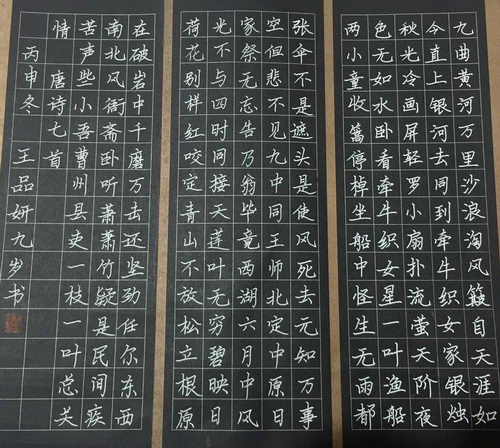 九曲黄河万里沙浪淘风簸自天涯如
今直上银河去同到牵牛织女家银烛
秋光冷画屏轻罗小扇扑流萤天阶夜
色凉如水卧看牵牛织女星一叶渔船
两小童收篙停棹坐船中怪生无雨都
张伞不是遮头是使风死去元知万事
空但悲不见九州同王师北定中原日
家祭无忘告乃翁毕竟西湖六月中风
光不与四时同接天莲叶无穷碧映日
荷花别样红咬定青山不放松立根原
在破岩中千磨万击还坚劲任尔东西
南北风衙斋卧听萧萧竹疑是民间疾
苦声些小吾曹州县吏一枝一叶总关
情 唐诗七首
丙申冬 王品妍九岁书